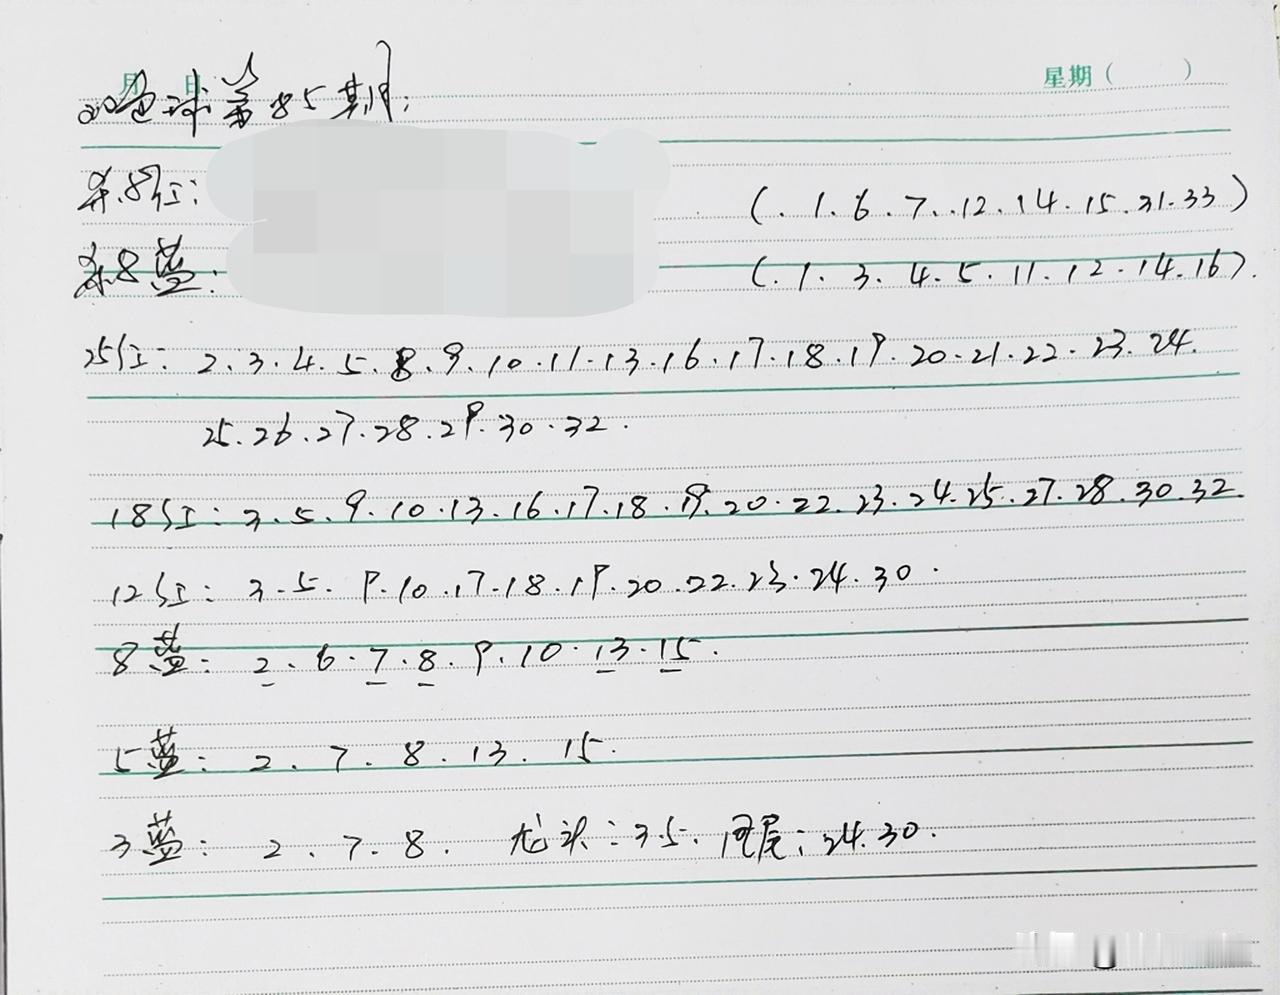 月 日 星期（ ）
双色球第85期:
杀.8红: (.1.6.7.12.14.15.31.33)
杀.8蓝: (.1.3.4.5.11.12.14.16).
25红: 2.3.4.5.8.9.10.11.13.16.17.18.19.20.21.22.23.24.
25.26.27.28.29.30.32.
18红: 3.5.9.10.13.16.17.18.19.20.22.23.24.25.27.28.30.32.
12红: 3.5.9.10.17.18.19.20.22.23.24.30.
8蓝: 2.6.7.8.9.10.13.15.
5蓝: 2.7.8.13.15.
3蓝: 2.7.8. 龙头:3.5. 凤尾:24.30.